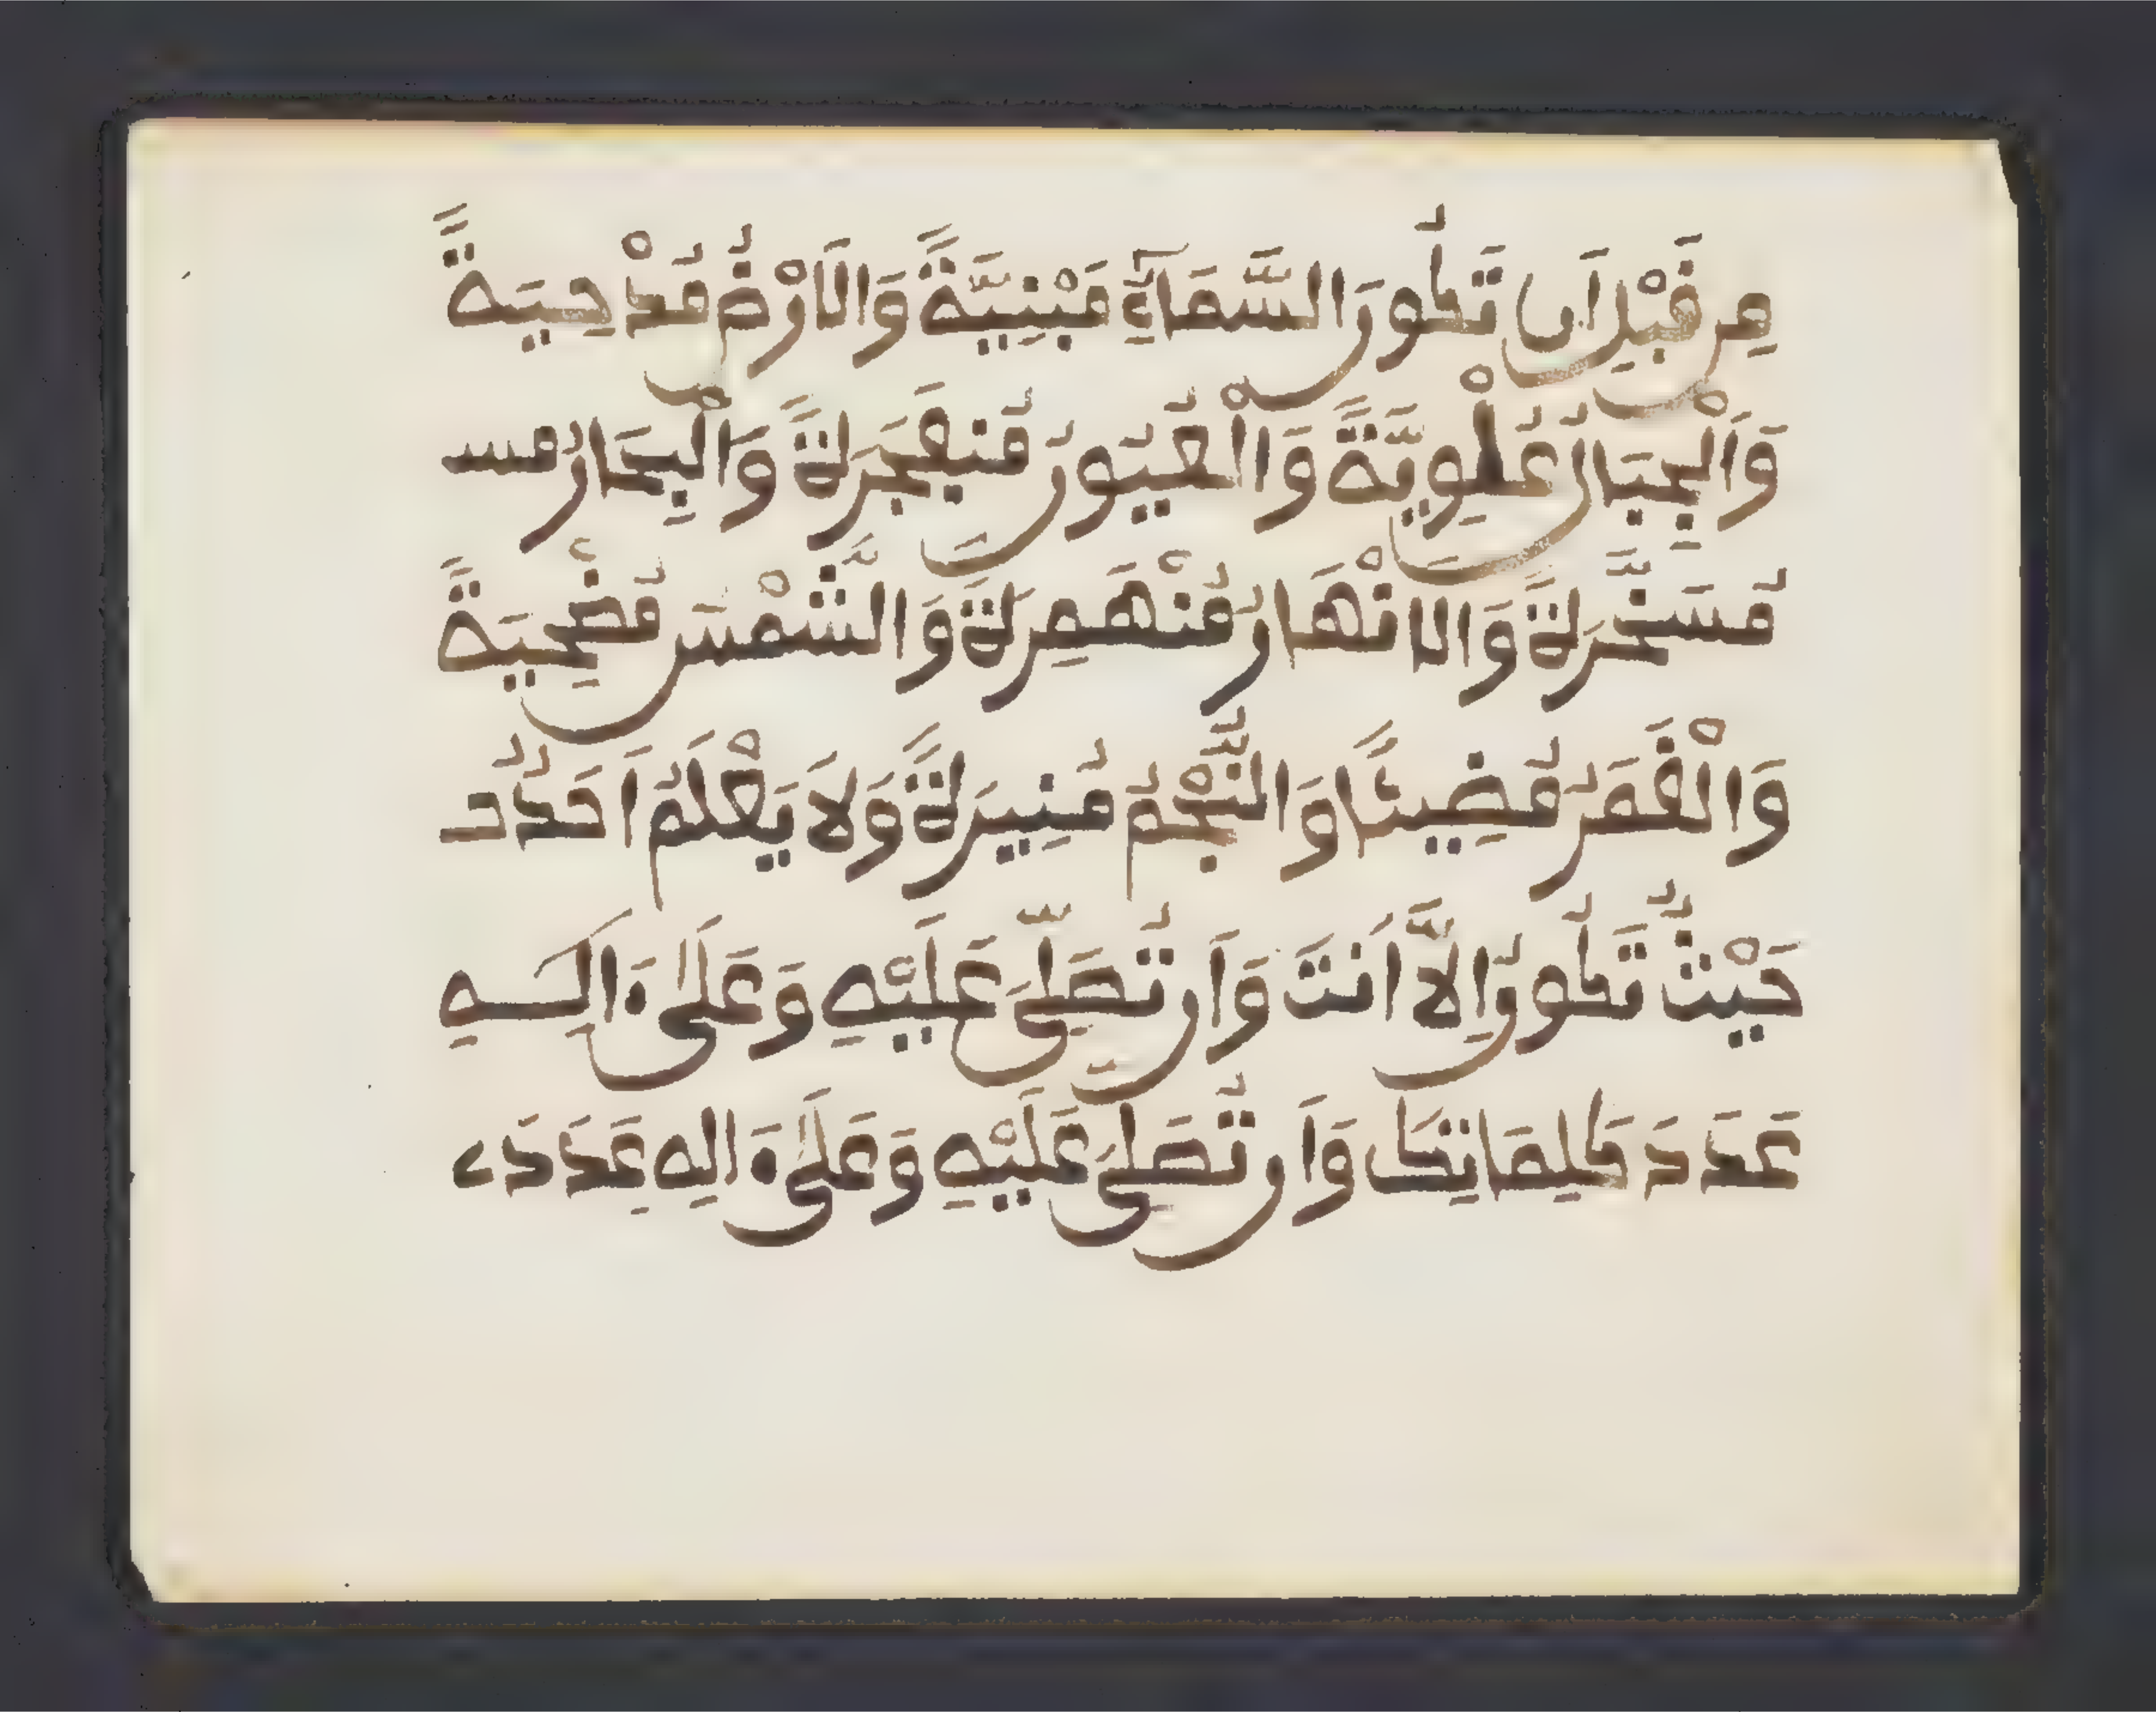 مِن قَبْلِ اَن تَكُونَ السَّمَآءِ مَبْنِيَّةً وَالَارْضُ مُدْحِيَةً
وَالْجِبَالُ عُلْوِيَّةً وَالْعُيُونُ مُنفَجَرَةً وَالْبِحَارُ مُسـ
مُسَخَّرَةً وَالانْهَارُ مُنْهَمِرَةً وَالشَّمْسَ مُضْحِيَةً
وَالْقَمَرُ مُضِيئًا وَالنَّجْمُ مُنِيرَةً وَلَا يَعْلَمُ اَحَدٌ
حَيْثُ تَكُونُ اِلَّا اَنتَ وَاَن تُصَلِّىَ عَلَيْهِ وَعَلَىٰ ءَالِـهِ
عَدَدَ كَلِمَاتِكَ وَاَن تُصَلِىَ عَلَيْهِ وَعَلَىٰ ءَالِهِ عَدَدَ